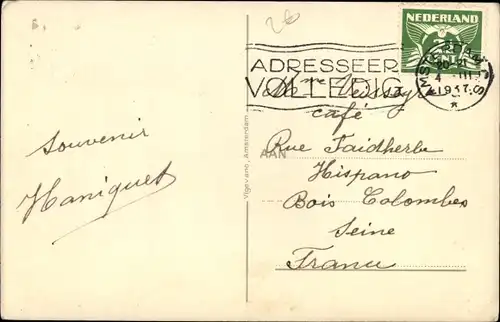 26
NEDERLAND
ADRESSEER
VOLLEDIG
4 III
1937
Mme
café
Souvenir
Haniquet
Vigevano, Amsterdam
AAN
Rue Faidherbe
Hispano
Bois Colombes
Seine
France